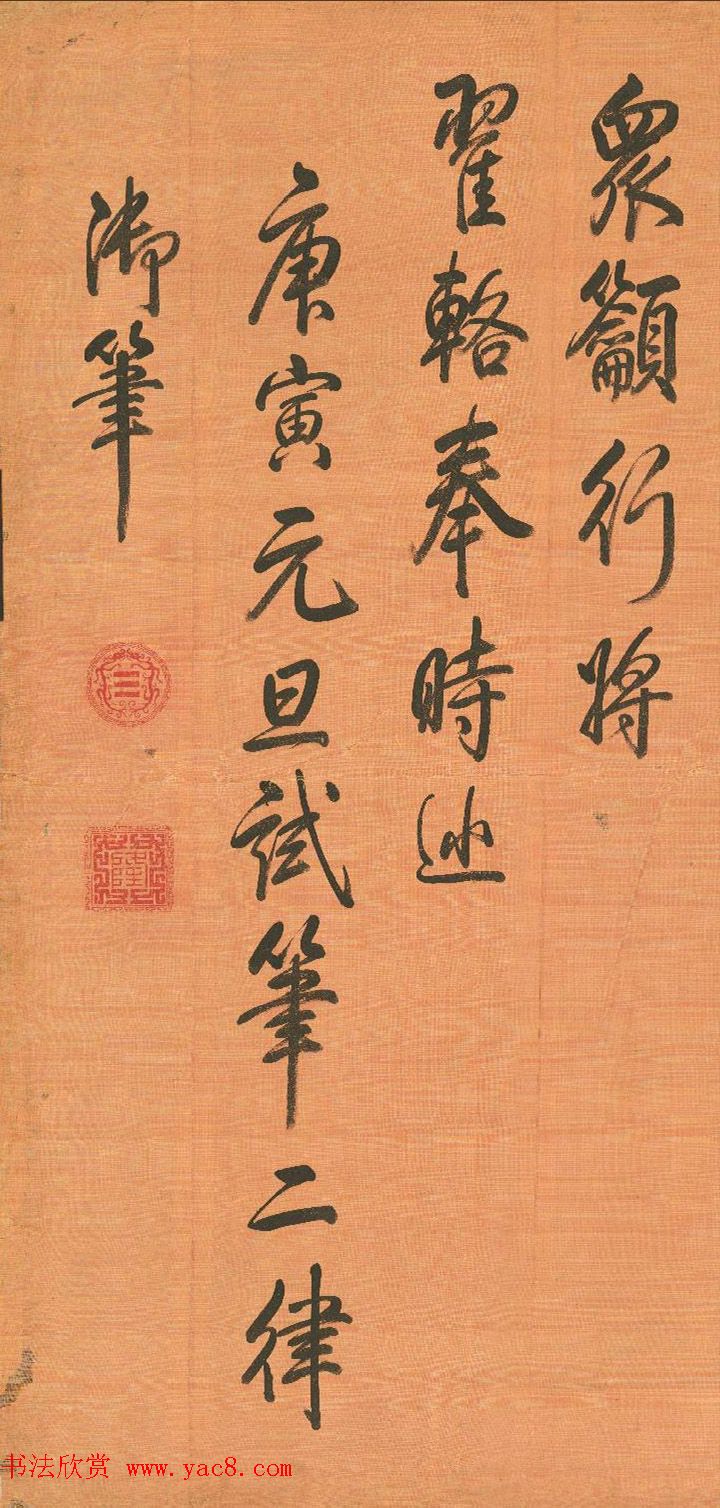 眾籲行將
翟輅奉時巡
庚寅元旦試筆二律
御筆
三
乾隆
书法欣赏 www.yac8.com